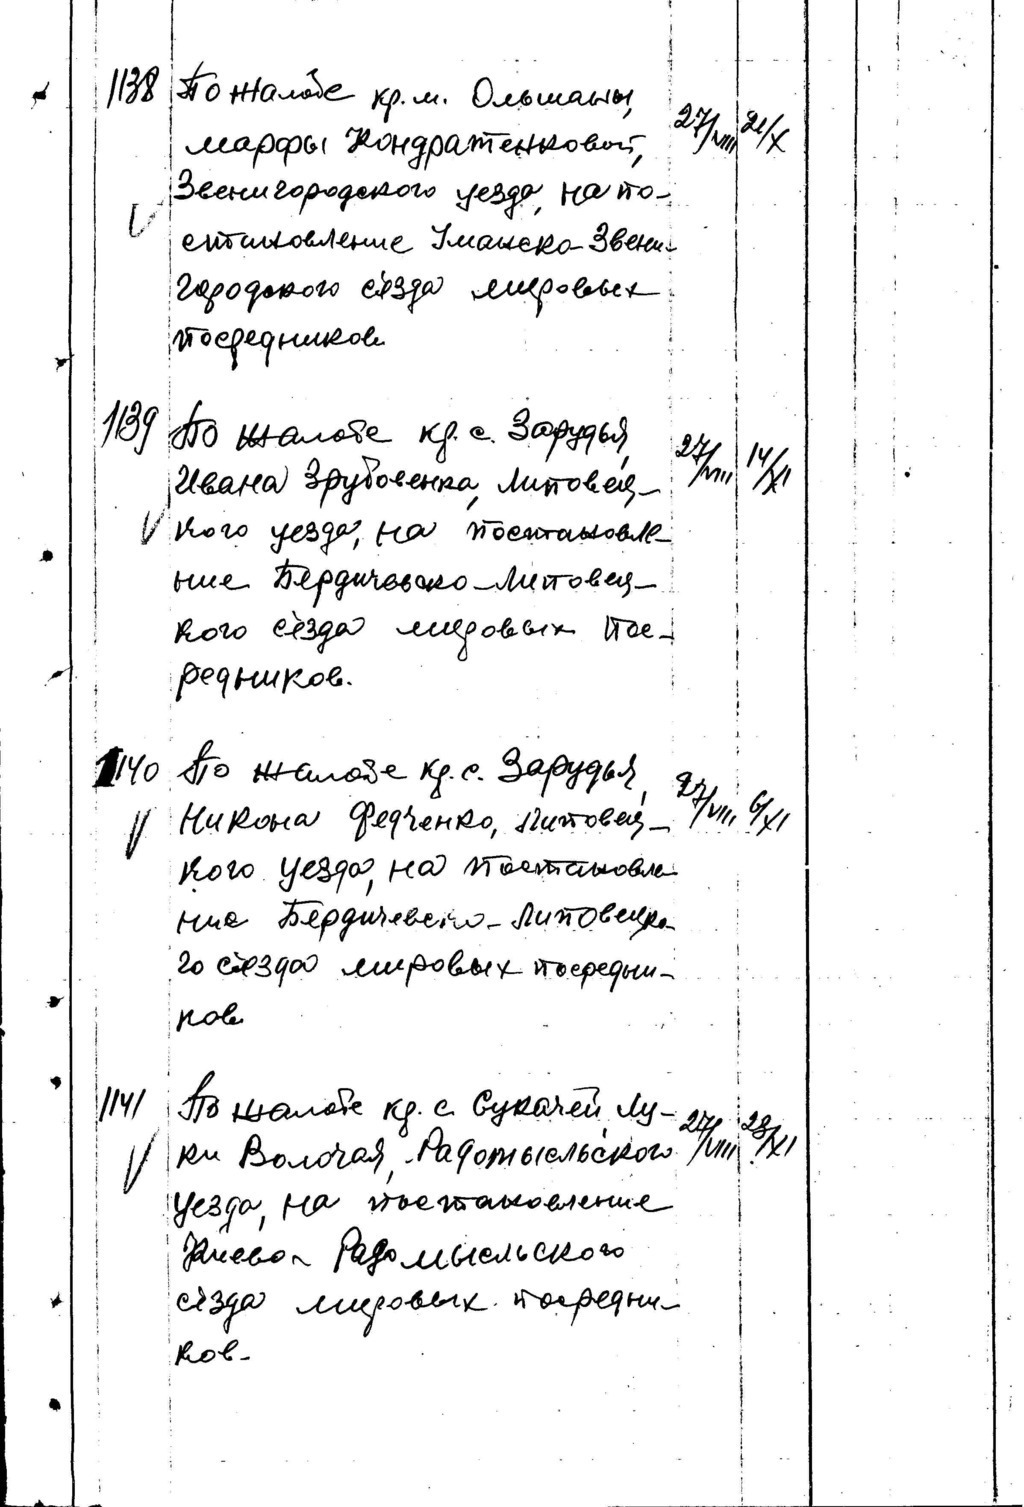 1138 По жалобе кр. м. Ольшаны,
марфы Кондратенковой, 27/VIII 21/X
Звенигородского уезда, на по-
становление Уманско-Звени-
городского с'езда мировых
посредников.
1139 По жалобе кр. с. Зарудья,
Ивана Зрубовенка, Липовец- 27/VIII 14/XI
кого уезда, на постановле-
ние Бердичевско-Липовец-
кого с'езда мировых пос-
редников.
1140 По жалобе кр. с. Зарудья,
Никона Федченко, Липовец- 27/VIII 6/XI
кого уезда, на постановле-
ние Бердичевско-Липовецко-
го с'езда мировых посредни-
ков
1141 По жалобе кр. с. Сукачей, Лу-
ки Волочая, Радомысльского 27/VIII 28/XI
уезда, на постановление
Киево-Радомысльского
с'езда мировых посредни-
ков-